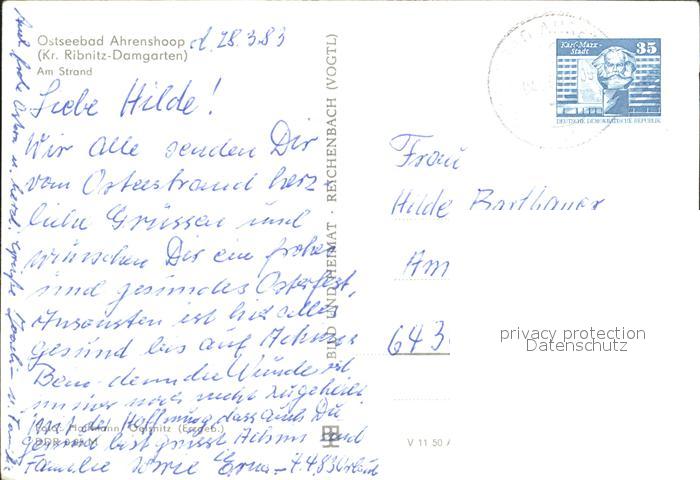 Ostseebad Ahrenshoop
(Kr. Ribnitz-Damgarten)
Am Strand
d. 28.3.83
Liebe Hilde!
Wir alle senden Dir
vom Ostseestrand herz-
liche Grüssen und
wünschen Dir ein frohes
und gesundes Osterfest,
Ansonsten ist hier alles
gesund bis auf Achims
Bein denn die Wunde ist
immer noch nicht zugeheilt
In der Hoffnung dass auch Du
gesund bist grüsst Achim und
Familie sowie Erna - 7.4.83 Urlaub
Foto: Hoffmann, Oelsnitz (Erzgeb.)
DDR
Auch frohe Ostern u. herzl. Grüße
BILD UND HEIMAT · REICHENBACH (VOGTL)
V 11 50
Karl-Marx-
Stadt
35
DEUTSCHE DEMOKRATISCHE REPUBLIK
Frau
Hilde Barthauer
Am
643
privacy protection
Datenschutz